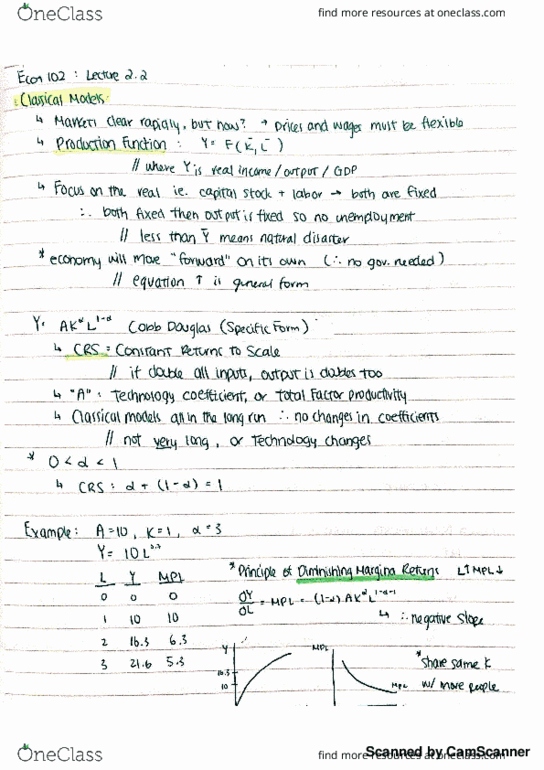 OneClass
find more resources at oneclass.com
Econ 102 : Lecture 2.2
Classical Models
↳ Markets clear rapidly, but how? → prices and wages must be flexible
↳ Production Function : Y = F(K̄, L̄)
// where Y is real income/output/GDP
↳ Focus on the real ie. capital stock + labor → both are fixed
∴ both fixed then output is fixed so no unemployment
// less than Ȳ means natural disaster
* economy will move "forward" on its own (∴ no gov. needed)
// equation ↑ is general form
Y = AK^α L^1-α Cobb Douglas (Specific Form)
↳ CRS = Constant Returns to Scale
// if double all inputs, output is doubles too
↳ "A" : Technology coefficient, or Total Factor productivity
↳ Classical models all in the long run ∴ no changes in coefficients
// not very long, or technology changes
* 0 < α < 1
↳ CRS : α + (1-α) = 1
Example: A=10, K=1, α=3
Y= 10 L^0.7
L Y MPL
0 0 0
1 10 10
2 16.3 6.3
3 21.6 5.3
* Principle of Diminishing Margina Returns L↑ MPL↓
∂Y/∂L = MPL = (1-α) AK^α L^1-α-1
↳ ∴ negative slope
Y
16.3
10
MPL
MPL
* share same K
w/ more people
OneClass
find more resources at oneclass.com
Scanned by CamScanner